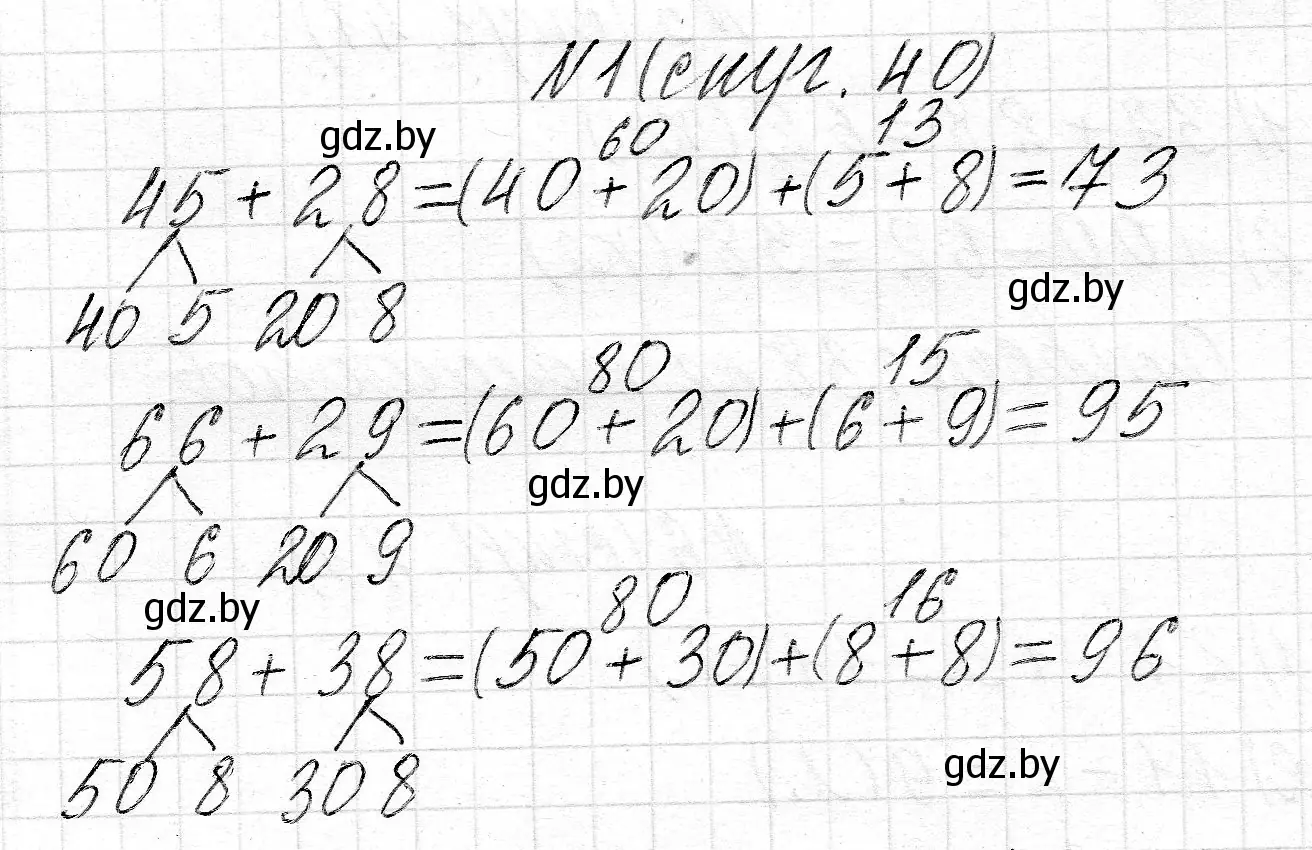 N1 (снуг. 40)
gdz.by
60 13
45 + 28 = (40 + 20) + (5 + 8) = 73
gdz.by
40 5 20 8
80 15
66 + 29 = (60 + 20) + (6 + 9) = 95
gdz.by
60 6 20 9
gdz.by
80 16
58 + 38 = (50 + 30) + (8 + 8) = 96
50 8 30 8
gdz.by